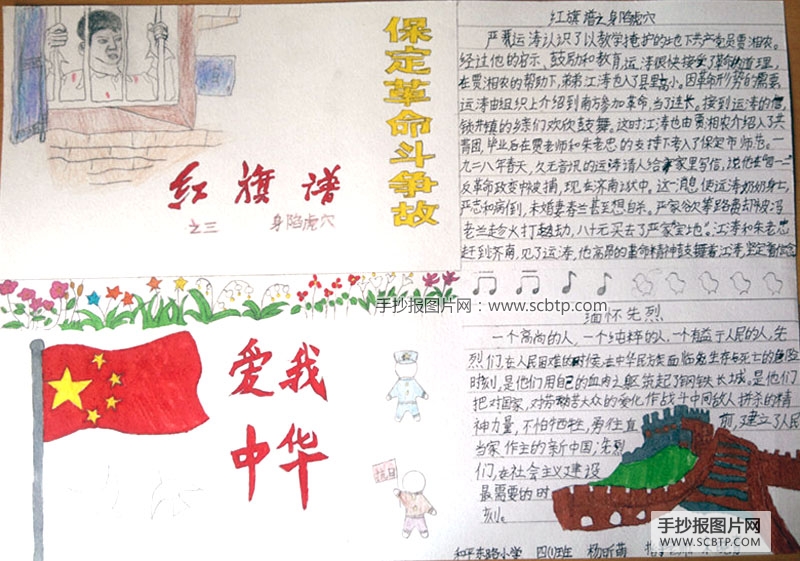 保定革命斗争故
红旗谱
之三 身陷虎穴
红旗谱之身陷虎穴
严运涛认识了以教学掩护的地下共产党员贾湘农。
经过他的启示、鼓励和教育,运涛很快接受了革命的道理,
在贾湘农的帮助下,弟弟江涛也入了县里高小。因革命形势的需要,
运涛由组织上介绍到南方参加革命,当了连长。接到运涛的信,
锁井镇的乡亲们欢欣鼓舞。这时江涛也由贾湘农介绍入了共
青团,毕业后在贾老师和朱老忠的支持下考入了保定市师范。一
九二八年春天,久无音讯的运涛请人给家里写信,说他在
反革命政变中被捕,现在济南狱中。这一消息使运涛奶奶身亡,
严志和病倒,未婚妻春兰甚至想自杀。严家欲筹路费却被冯
老兰趁火打劫,八十元买去了严家宝地。江涛和朱老忠
赶到济南,见了运涛,他高昂的革命精神鼓舞着江涛,坚定着信念
手抄报图片网:www.scbtp.com
缅怀先烈
一个高尚的人,一个纯粹的人,一个有益于人民的人,先
烈们,在人民困难的时候,在中华民族面临生存与死亡的危险
时刻,是他们用自己的血肉之躯筑起了钢铁长城。是他们
把对国家,对劳苦大众的爱化作战斗中同敌人拼杀的精
神力量,不怕牺牲,勇往直前,建立了人民
当家作主的新中国;先烈
们,在社会主义建设
最需要的时
刻。
爱我
中华
抗日
手抄报图片网
WWW.SCBTP.COM
和平东路小学 四(1)班 杨昕萌